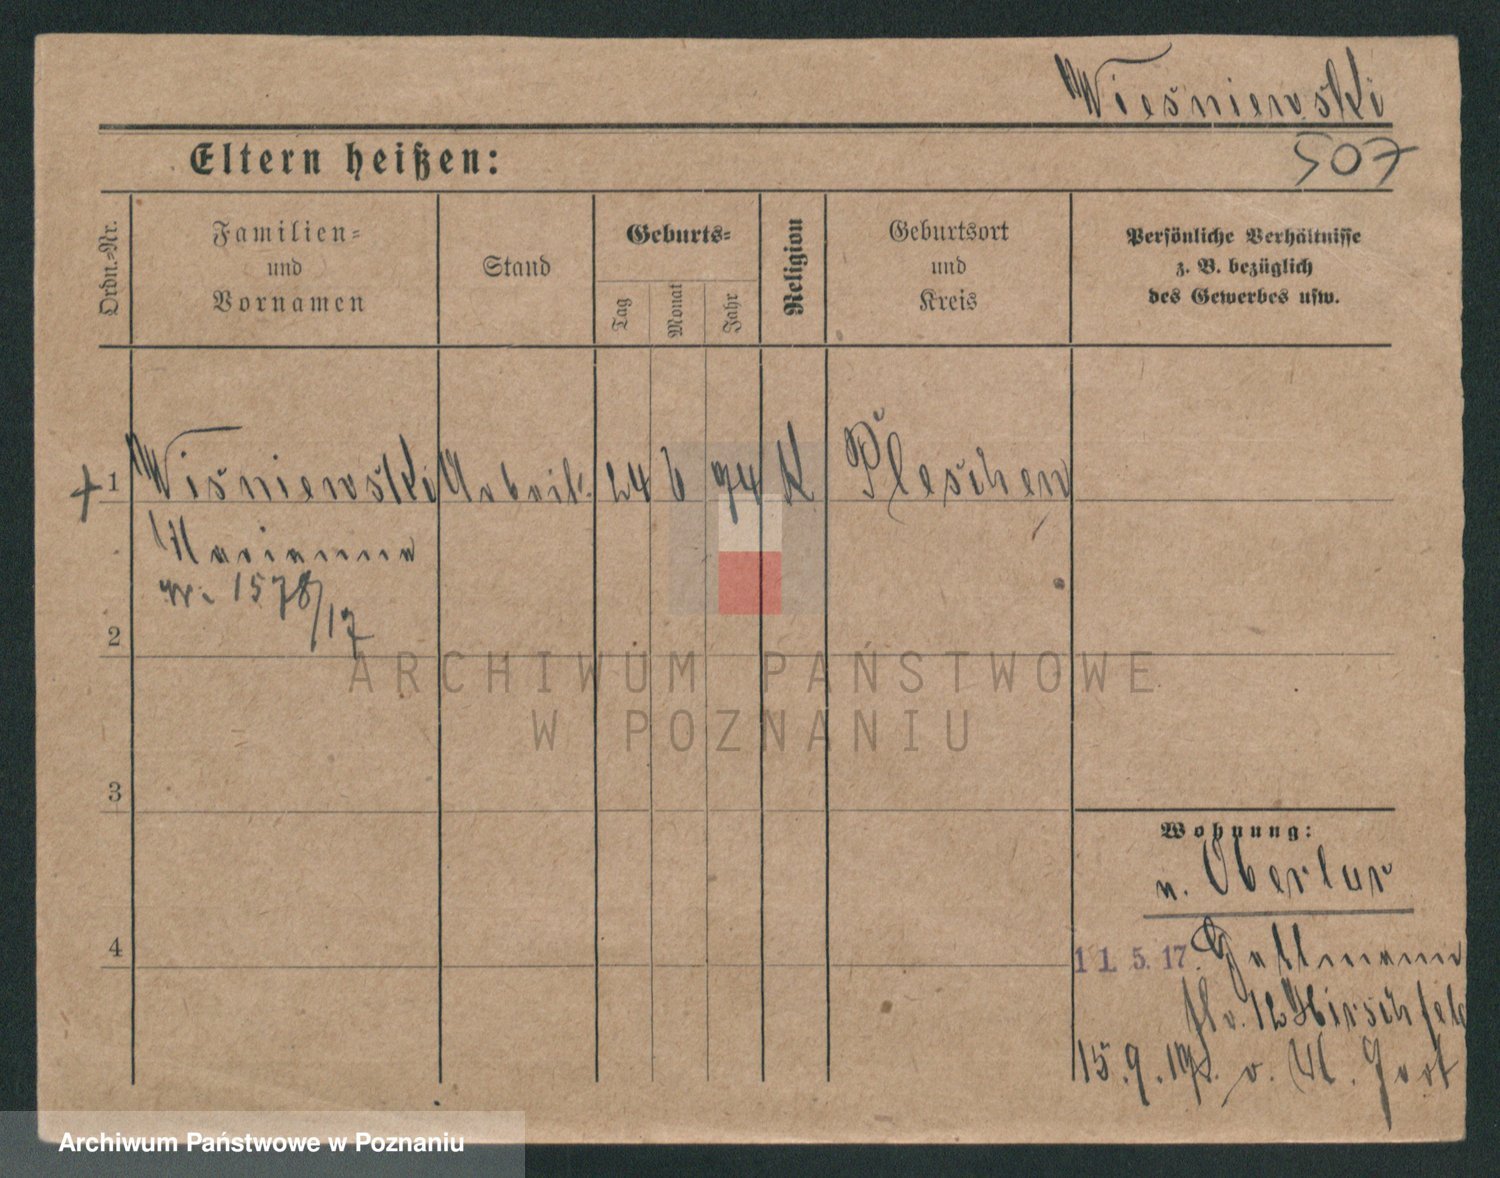 Wieśniewski
507
Eltern heißen:
Ordn.-Nr.
Familien-
und
Vornamen
Stand
Geburts-
Tag
Monat
Jahr
Religion
Geburtsort
und
Kreis
Persönliche Verhältnisse
z. B. bezüglich
des Gewerbes usw.
+ 1 Wiśniewski Arbeit. 24 6 94 K Pleschen
Marianna
1578/17
2
3
4
Wohnung:
n. Oberlar
11. 5. 17.
12 Hirschfeld
15.9.
ARCHIWUM PAŃSTWOWE
W POZNANIU
Archiwum Państwowe w Poznaniu